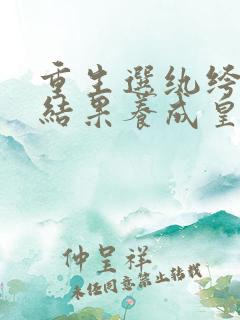 重生選紈絝
結果養成皇
仲呈祥
未经同意禁止转载